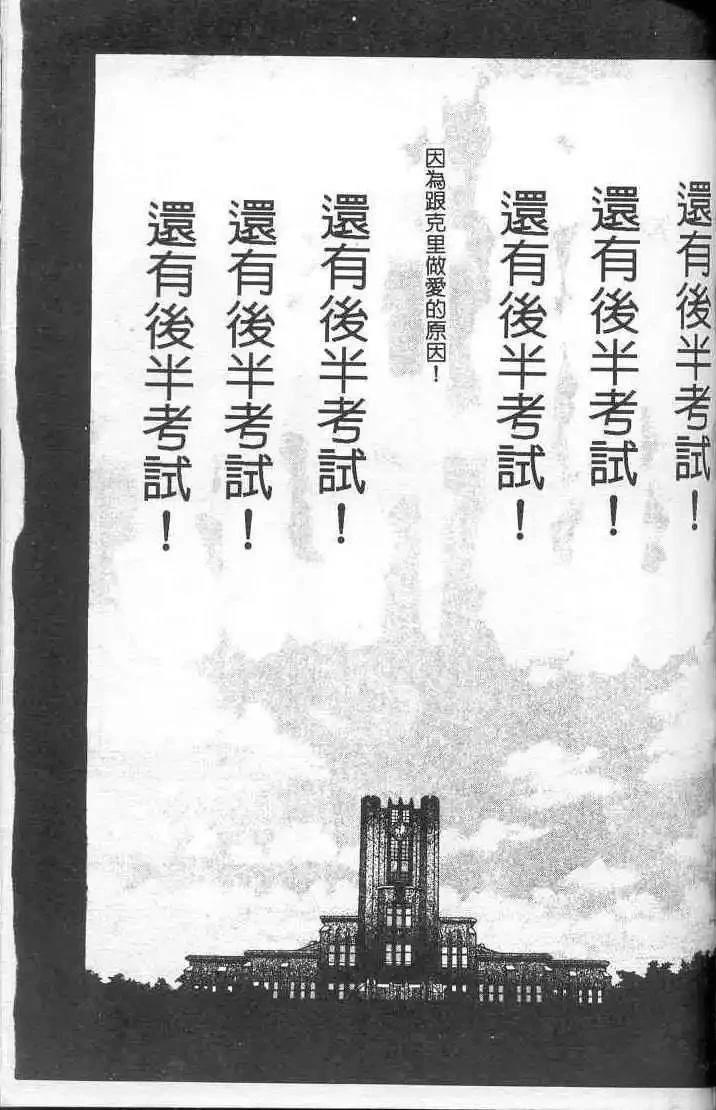 還有後半考試！
還有後半考試！
還有後半考試！
因為跟克里做愛的原因！
還有後半考試！
還有後半考試！
還有後半考試！